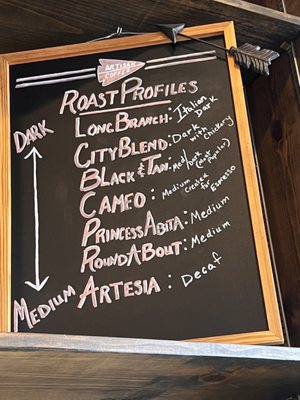 ARTISAN
COFFEE
ROAST PROFILES
DARK
LONG BRANCH: Italian Dark
CITY BLEND: Dark with Chickory
BLACK & TAN: Med/Dark (Most Popular)
CAMEO: Medium created for Espresso
PRINCESS ABITA: Medium
ROUND ABOUT: Medium
MEDIUM
ARTESIA: Decaf